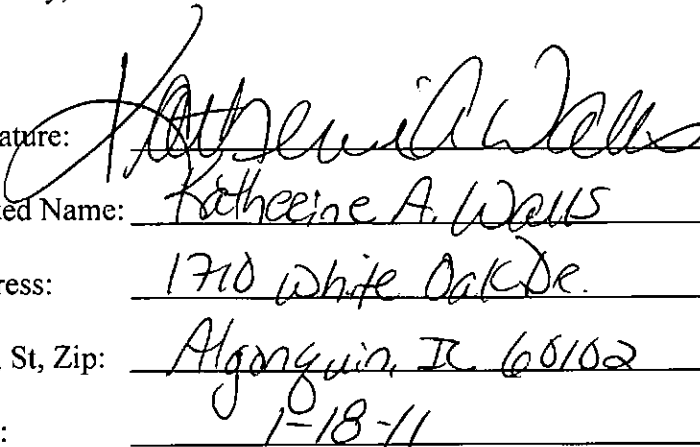 ature: Katherine A Walls
ted Name: Katherine A. Walls
ress: 1710 White Oak Dr.
St, Zip: Algonquin, IL 60102
: 1-18-11